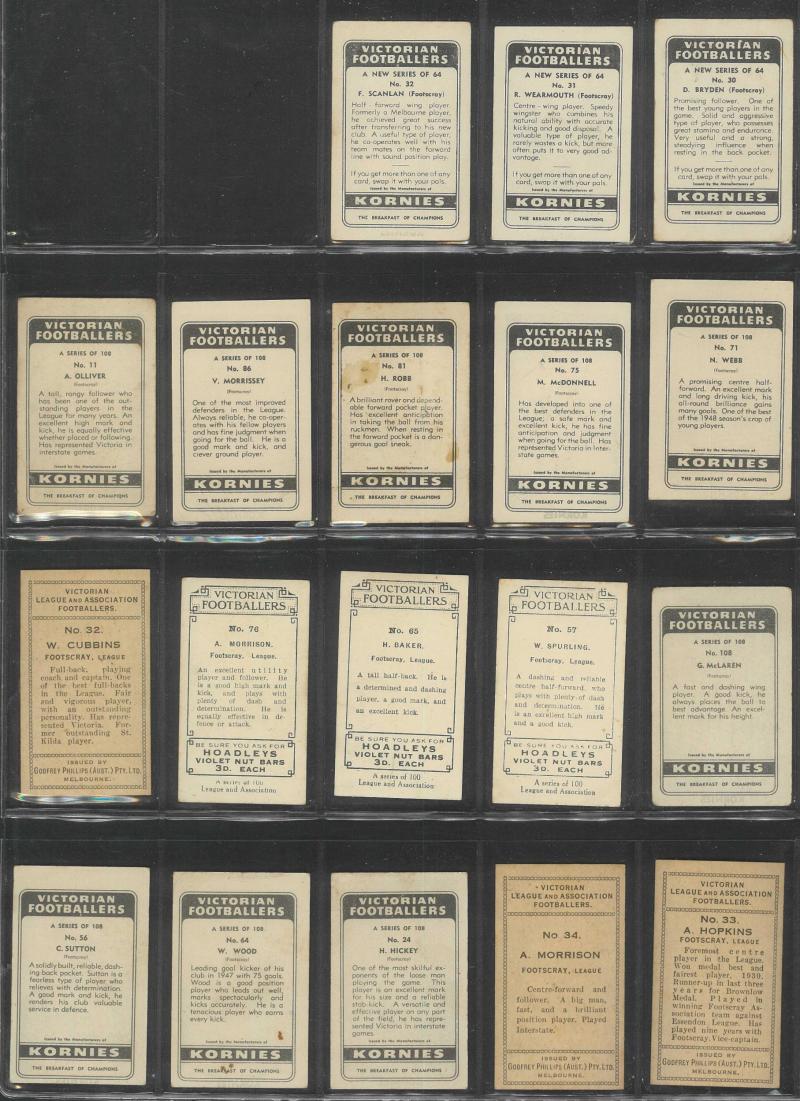 VICTORIAN
FOOTBALLERS
A NEW SERIES OF 64
No. 32
F. SCANLAN (Footscray)
Half - forward wing player.
Formerly a Melbourne player,
he achieved great success
after transferring to his new
club. A useful type of player,
he co-operates well with his
team mates on the forward
line with sound position play.
If you get more than one of any
card, swap it with your pals.
Issued by the Manufacturers of
KORNIES
THE BREAKFAST OF CHAMPIONS
VICTORIAN
FOOTBALLERS
A NEW SERIES OF 64
No. 31
R. WEARMOUTH (Footscray)
Centre - wing player. Speedy
wingster who combines his
natural ability with accurate
kicking and good disposal. A
valuable type of player, he
rarely wastes a kick, but more
often puts it to very good ad-
vantage.
If you get more than one of any
card, swap it with your pals.
Issued by the Manufacturers of
KORNIES
THE BREAKFAST OF CHAMPIONS
VICTORIAN
FOOTBALLERS
A NEW SERIES OF 64
No. 30
D. BRYDEN (Footscray)
Promising follower. One of
the best young players in the
game. Solid and aggressive
type of player, who possesses
great stamina and endurance.
Very useful and a strong,
steadying influence when
resting in the back pocket.
If you get more than one of any
card, swap it with your pals.
Issued by the Manufacturers of
KORNIES
THE BREAKFAST OF CHAMPIONS
VICTORIAN
FOOTBALLERS
A SERIES OF 108
No. 11
A. OLLIVER
(Footscray)
A tall, rangy follower who
has been one of the out-
standing players in the
League for many years. An
excellent high mark and
kick, he is equally effective
whether placed or following.
Has represented Victoria in
interstate games.
Issued by the Manufacturers of
KORNIES
THE BREAKFAST OF CHAMPIONS
VICTORIAN
FOOTBALLERS
A SERIES OF 108
No. 86
V. MORRISSEY
(Footscray)
One of the most improved
defenders in the League.
Always reliable, he co-oper-
ates with his fellow players
and has fine judgment when
going for the ball. He is a
good mark and kick, and
clever ground player.
Issued by the Manufacturers of
KORNIES
THE BREAKFAST OF CHAMPIONS
VICTORIAN
FOOTBALLERS
A SERIES OF 108
No. 81
H. ROBB
(Footscray)
A brilliant rover and depend-
able forward pocket player.
Has excellent anticipation
in taking the ball from his
ruckmen. When resting in
the forward pocket is a dan-
gerous goal sneak.
Issued by the Manufacturers of
KORNIES
THE BREAKFAST OF CHAMPIONS
VICTORIAN
FOOTBALLERS
A SERIES OF 108
No. 75
M. McDONNELL
(Footscray)
Has developed into one of
the best defenders in the
League; a safe mark and
excellent kick, he has fine
anticipation and judgment
when going for the ball. Has
represented Victoria in Inter-
state games.
Issued by the Manufacturers of
KORNIES
THE BREAKFAST OF CHAMPIONS
VICTORIAN
FOOTBALLERS
A SERIES OF 108
No. 71
N. WEBB
(Footscray)
A promising centre half-
forward. An excellent mark
and long driving kick, his
all-round brilliance gains
many goals. One of the best
of the 1948 season's crop of
young players.
Issued by the Manufacturers of
KORNIES
THE BREAKFAST OF CHAMPIONS
VICTORIAN
LEAGUE AND ASSOCIATION
FOOTBALLERS.
No. 32.
W. CUBBINS
FOOTSCRAY, LEAGUE
Full-back, playing
coach and captain. One
of the best full-backs
in the League. Fair
and vigorous player,
with an outstanding
personality. Has repre-
sented Victoria. For-
mer outstanding St.
Kilda player.
ISSUED BY
GODFREY PHILLIPS (AUST.) PTY. LTD.
MELBOURNE.
VICTORIAN
FOOTBALLERS
No. 76
A. MORRISON.
Footscray, League.
An excellent utility
player and follower. He
is a good high mark and
kick, and plays with
plenty of dash and
determination. He is
equally effective in de-
fence or attack.
BE SURE YOU ASK FOR
HOADLEYS
VIOLET NUT BARS
3D. EACH
A series of 100
League and Association
VICTORIAN
FOOTBALLERS
No. 65
H. BAKER.
Footscray, League.
A tall half-back. He is
a determined and dashing
player, a good mark, and
an excellent kick.
BE SURE YOU ASK FOR
HOADLEYS
VIOLET NUT BARS
3D. EACH
A series of 100
League and Association
VICTORIAN
FOOTBALLERS
No. 57
W. SPURLING.
Footscray, League.
A dashing and reliable
centre half-forward, who
plays with plenty of dash
and determination. He
is an excellent high mark
and a good kick.
BE SURE YOU ASK FOR
HOADLEYS
VIOLET NUT BARS
3D. EACH
A series of 100
League and Association
VICTORIAN
FOOTBALLERS
A SERIES OF 108
No. 108
G. McLAREN
(Footscray)
A fast and dashing wing
player. A good kick, he
always places the ball to
best advantage. An excel-
lent mark for his height.
Issued by the Manufacturers of
KORNIES
THE BREAKFAST OF CHAMPIONS
VICTORIAN
FOOTBALLERS
A SERIES OF 108
No. 56
C. SUTTON
(Footscray)
A solidly built, reliable, dash-
ing back pocket. Sutton is a
fearless type of player who
relieves with determination.
A good mark and kick, he
renders his club valuable
service in defence.
Issued by the Manufacturers of
KORNIES
THE BREAKFAST OF CHAMPIONS
VICTORIAN
FOOTBALLERS
A SERIES OF 108
No. 64
W. WOOD
(Footscray)
Leading goal kicker of his
club in 1947 with 75 goals.
Wood is a good position
player who leads out well,
marks spectacularly and
kicks accurately. He is a
tenacious player who earns
every kick.
Issued by the Manufacturers of
KORNIES
THE BREAKFAST OF CHAMPIONS
VICTORIAN
FOOTBALLERS
A SERIES OF 108
No. 24
H. HICKEY
(Footscray)
One of the most skilful ex-
ponents of the loose man
playing the game. This
player is an excellent mark
for his size and a reliable
stab-kick. A versatile and
effective player on any part
of the field, he has repre-
sented Victoria in interstate
games.
Issued by the Manufacturers of
KORNIES
THE BREAKFAST OF CHAMPIONS
VICTORIAN
LEAGUE AND ASSOCIATION
FOOTBALLERS.
No 34.
A. MORRISON
FOOTSCRAY, LEAGUE
Centre-forward and
follower. A big man,
fast, and a brilliant
position player. Played
Interstate.
ISSUED BY
GODFREY PHILLIPS (AUST.) PTY. LTD.
MELBOURNE
VICTORIAN
LEAGUE AND ASSOCIATION
FOOTBALLERS.
No. 33.
A. HOPKINS
FOOTSCRAY, LEAGUE
Foremost centre
player in the League.
Won medal best and
fairest player, 1930.
Runner-up in last three
years for Brownlow
Medal. Played in
winning Footscray As-
sociation team against
Essendon League. Has
played nine years with
Footscray. Vice-captain.
ISSUED BY
GODFREY PHILLIPS (AUST.) PTY. LTD.
MELBOURNE.